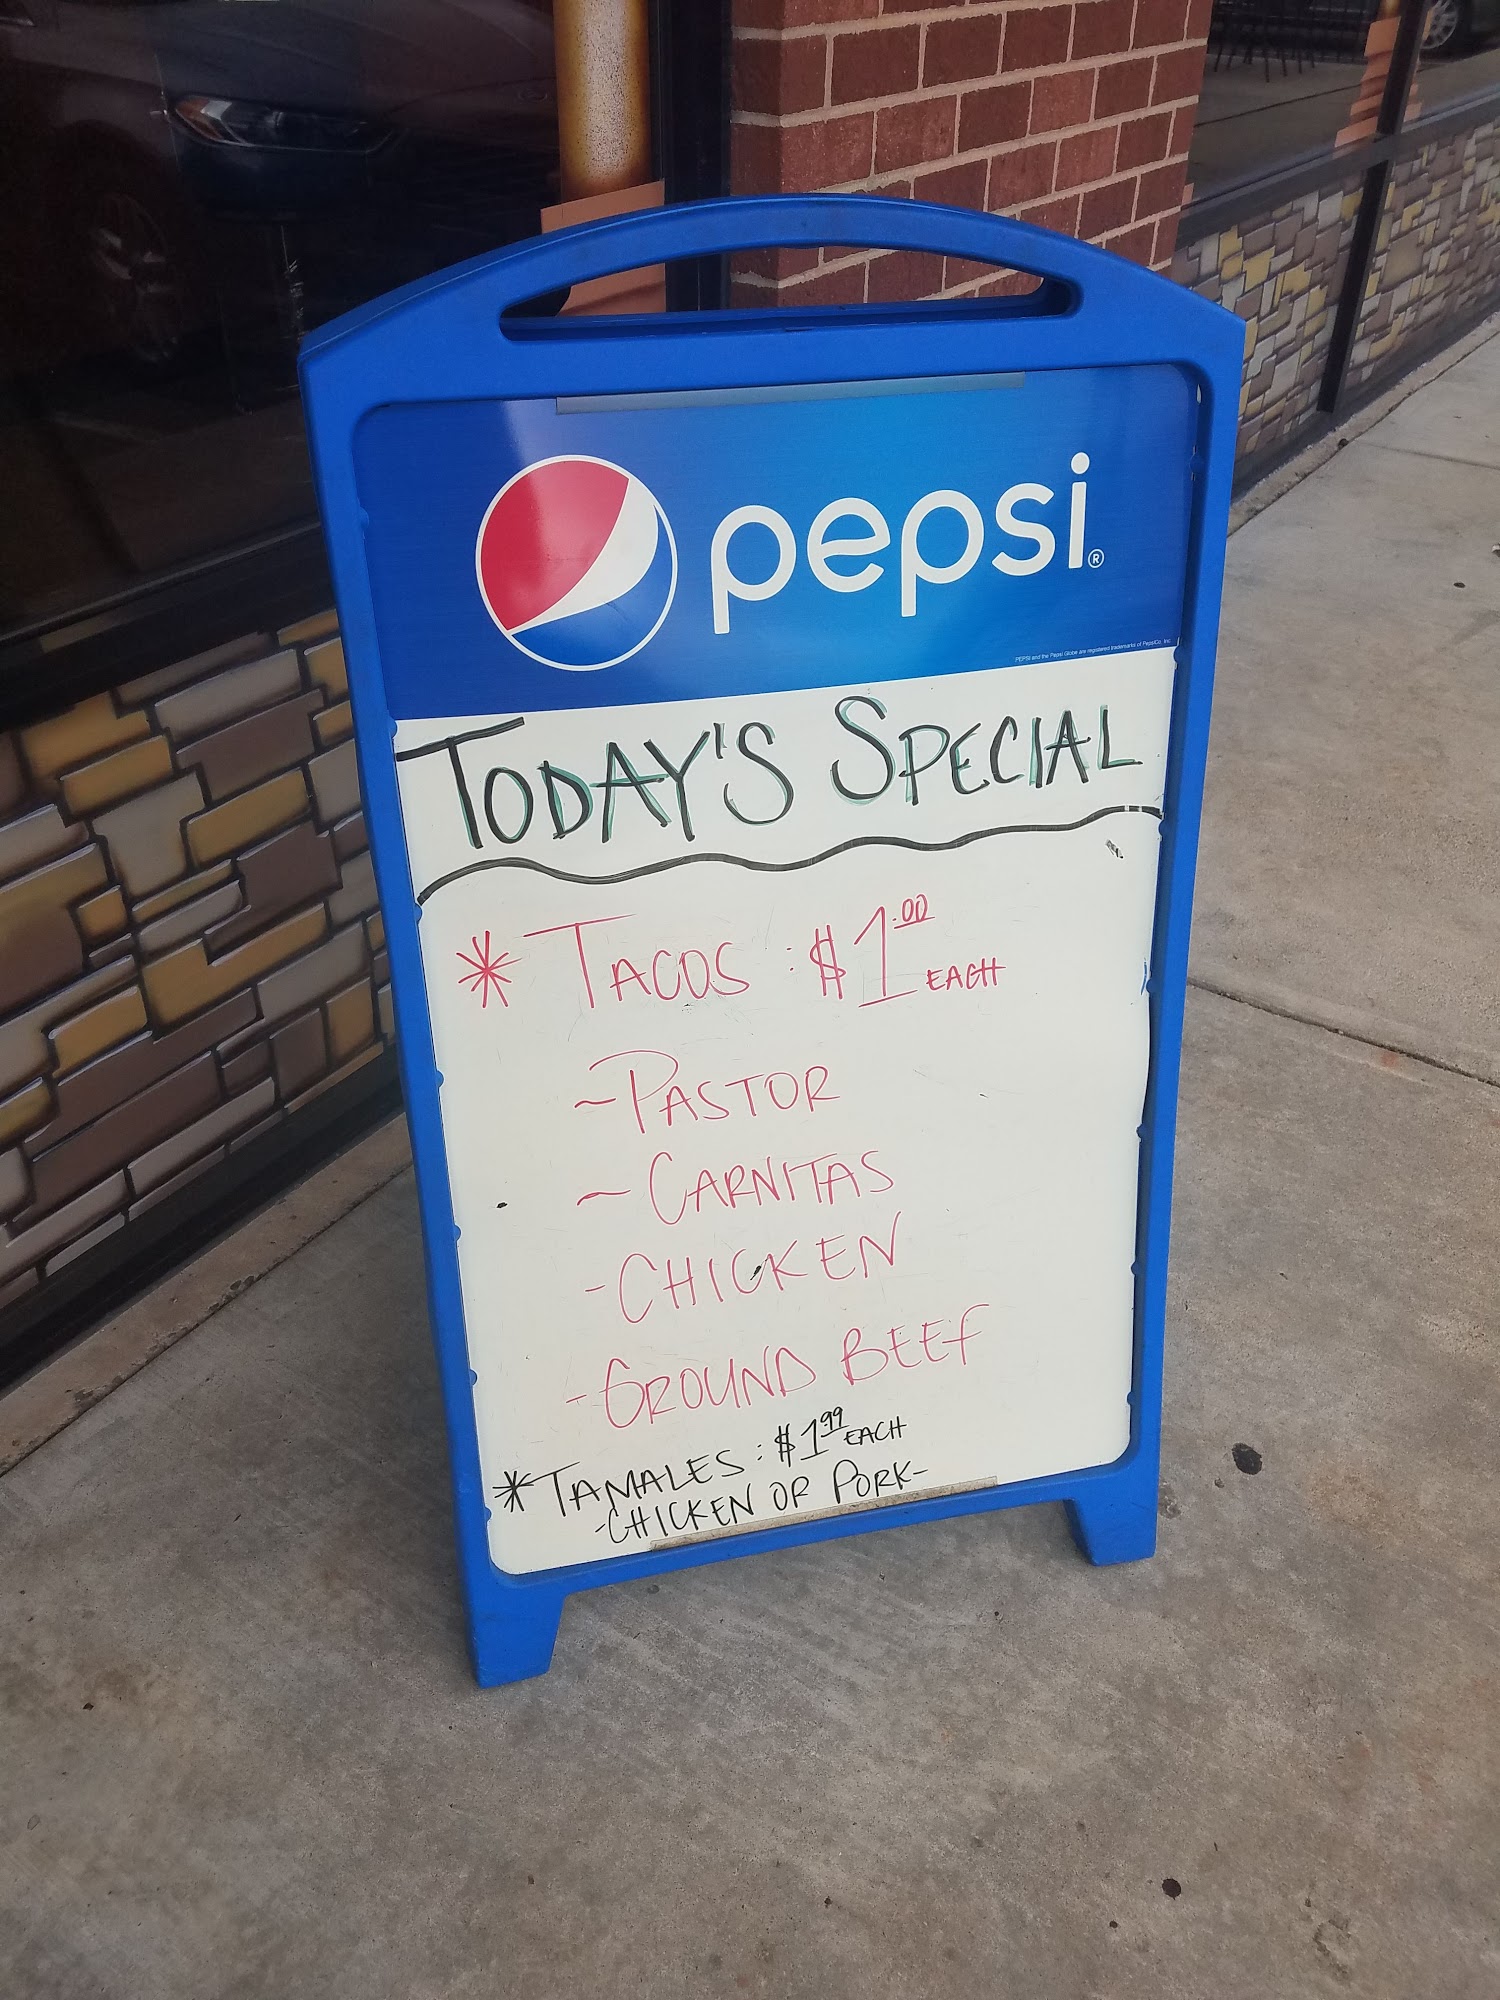 pepsi®
PEPSI and the Pepsi Globe are registered trademarks of PepsiCo, Inc.
TODAY'S SPECIAL
* TACOS: $1.00 EACH
~PASTOR
~ CARNITAS
-CHICKEN
-GROUND BEEF
* TAMALES: $1.99 EACH
-CHICKEN OR PORK-